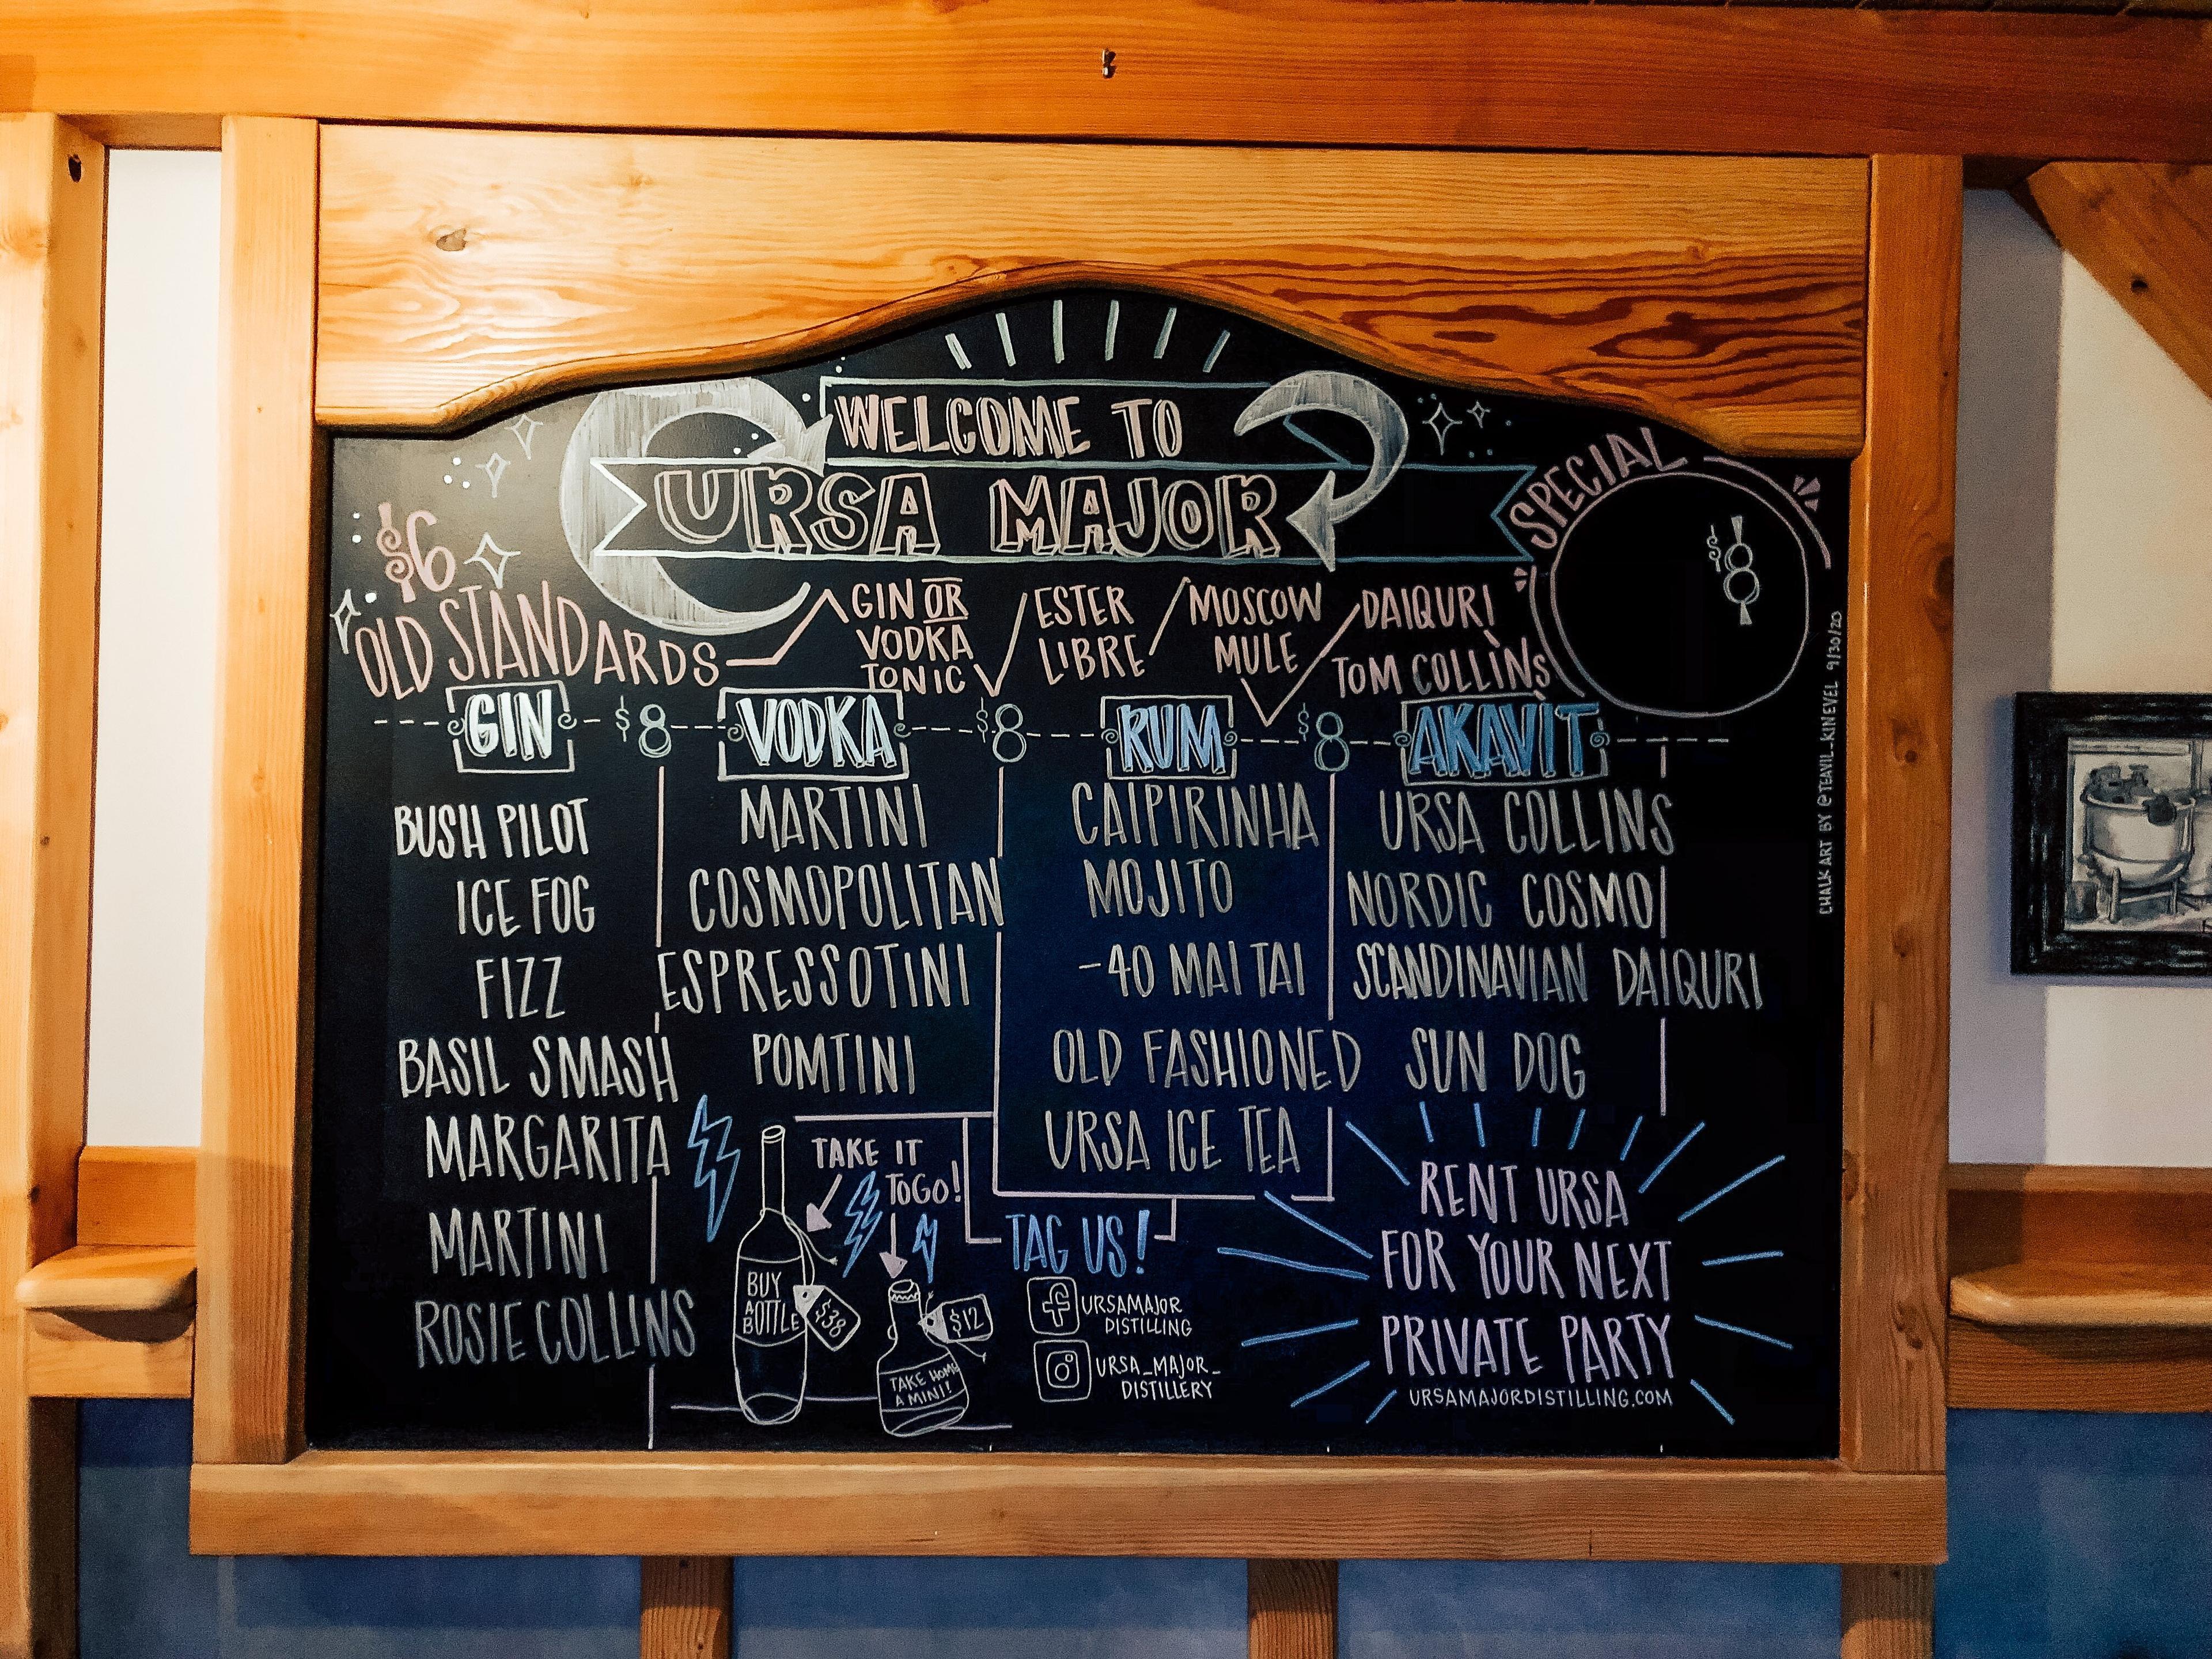 WELCOME TO
URSA MAJOR
SPECIAL
$8
$6
OLD STANDARDS
GIN OR
VODKA
TONIC
ESTER
LIBRE
MOSCOW
MULE
DAIQURI
TOM COLLINS
GIN $8 VODKA $8 RUM $8 AKAVIT
BUSH PILOT
ICE FOG
FIZZ
BASIL SMASH
MARGARITA
MARTINI
ROSIE COLLINS
MARTINI
COSMOPOLITAN
ESPRESSOTINI
POMTINI
TAKE IT
TOGO!
BUY
A
BOTTLE
$38
$12
TAKE HOME
A MINI!
CAIPIRINHA
MOJITO
-40 MAI TAI
OLD FASHIONED
URSA ICE TEA
TAG US!
URSAMAJOR
DISTILLING
URSA_MAJOR_
DISTILLERY
URSA COLLINS
NORDIC COSMO
SCANDINAVIAN DAIQURI
SUN DOG
RENT URSA
FOR YOUR NEXT
PRIVATE PARTY
URSAMAJORDISTILLING.COM
CHALK ART BY @TEAVIL_KINEVEL 9/30/20